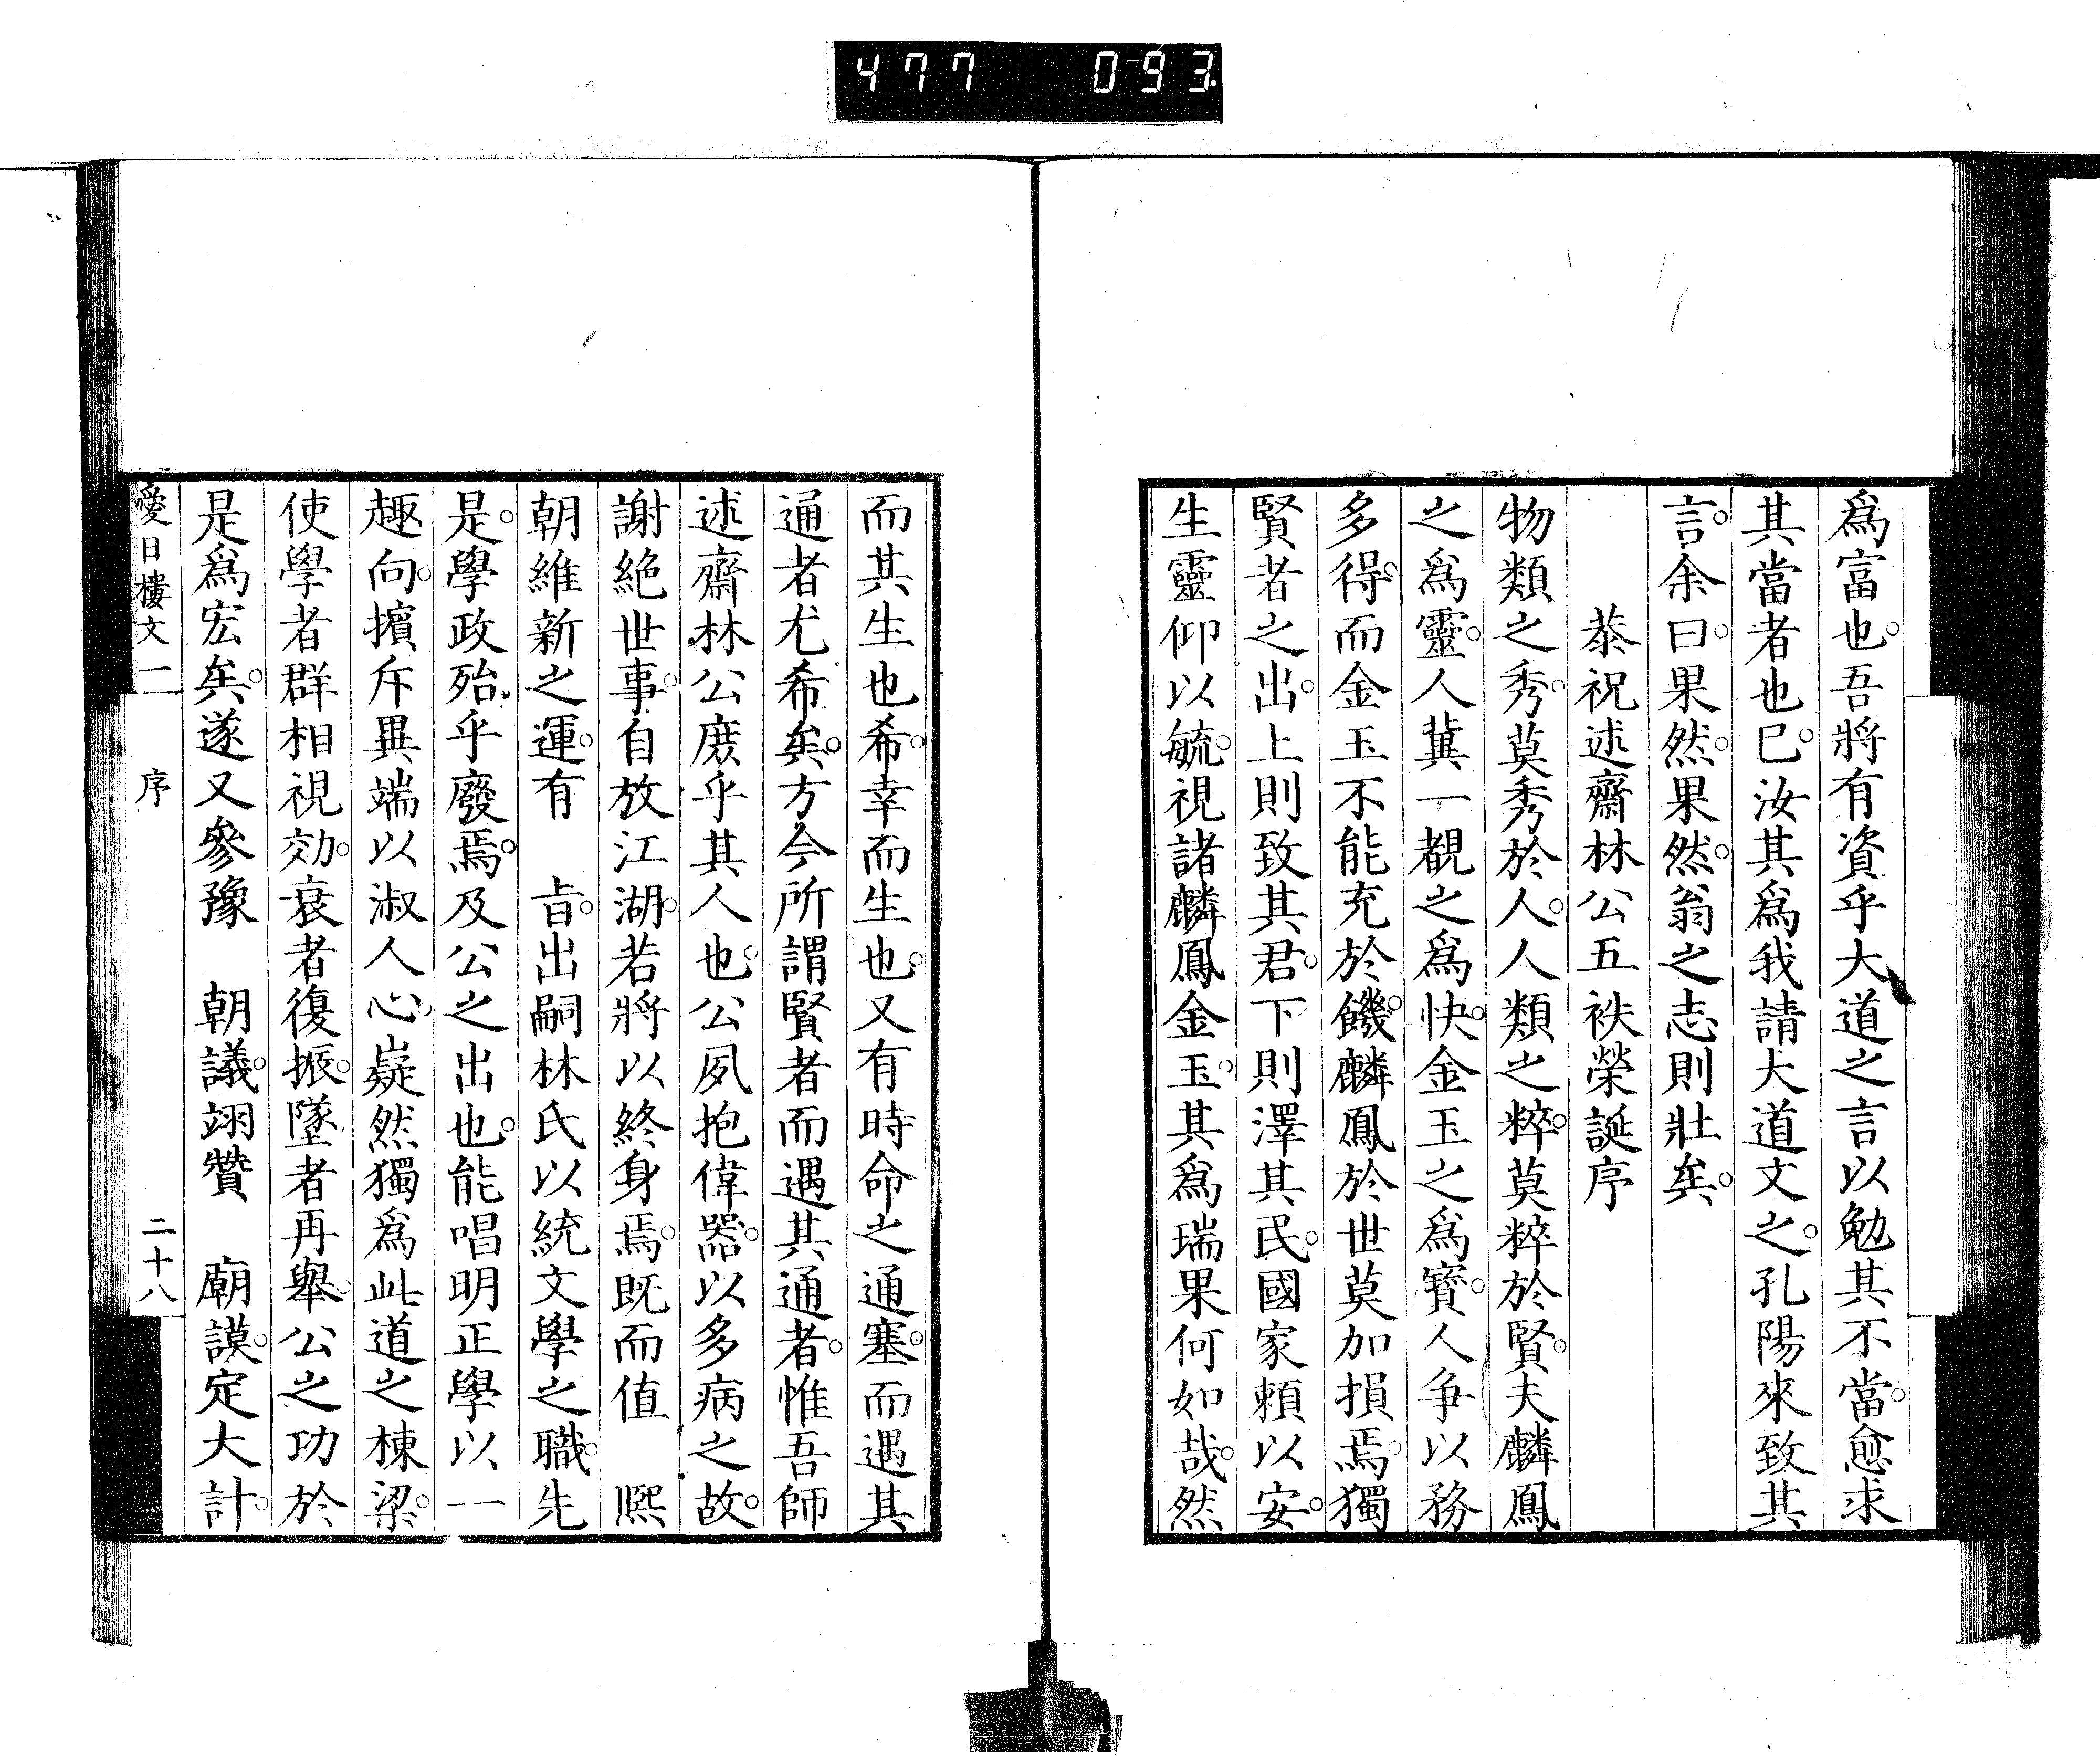 477 093
爲富也。吾將有資乎大道之言以勉其不當。愈求
其當者也已。汝其爲我請大道文之。孔陽來致其
言。余曰。果然。果然。翁之志則壯矣。
恭祝述齋林公五袟榮誕序
物類之秀。莫秀於人。人類之粹。莫粹於賢。夫麟鳳
之爲靈。人冀一覩之爲快。金玉之爲寶。人争以務
多得。而金玉不能充於饑。麟鳳於世莫加損焉。獨
賢者之出。上則致其君。下則澤其民。國家頼以安。
生靈仰以毓。視諸麟鳳金玉。其爲瑞果何如哉。然
而其生也希。幸而生也。又有時命之通塞。而遇其
通者尤希矣。方今所謂賢者而遇其通者。惟吾師
述齋林公庻乎其人也。公夙抱偉器。以多病之故。
謝絶世事。自放江湖。若將以終身焉。既而値　熈
朝維新之運。有　旨。出嗣林氏以統文學之職。先
是。學政殆乎廢焉。及公之出也。能唱明正學以一
趣向。擯斥異端以淑人心。嶷然獨爲此道之棟梁。
使學者群相視效。衰者復振。墜者再舉。公之功於
是爲宏矣。遂又參豫　朝議。翊贊　廟謨。定大計。
愛日樓文二　序　二十八